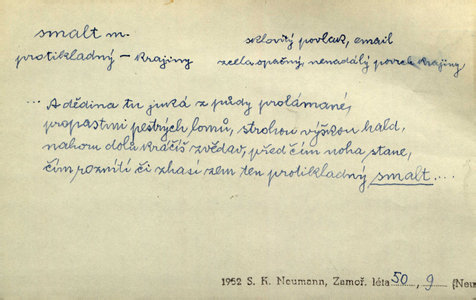 smalt m.
sklovitý povlak, email
protikladný – krajiny
zcela opačný, nenadálý povrch krajiny
... A dědina tu juká z půdy prolámané,
propastmi pestrých lomů, strohou výškou hald,
nahoru dolů kráčíš zvědav, před čím noha stane,
čím roznítí či zhasí zem ten protikladný smalt ...
1952 S. K. Neumann, Zamoř. léta 50, 9 (Neu